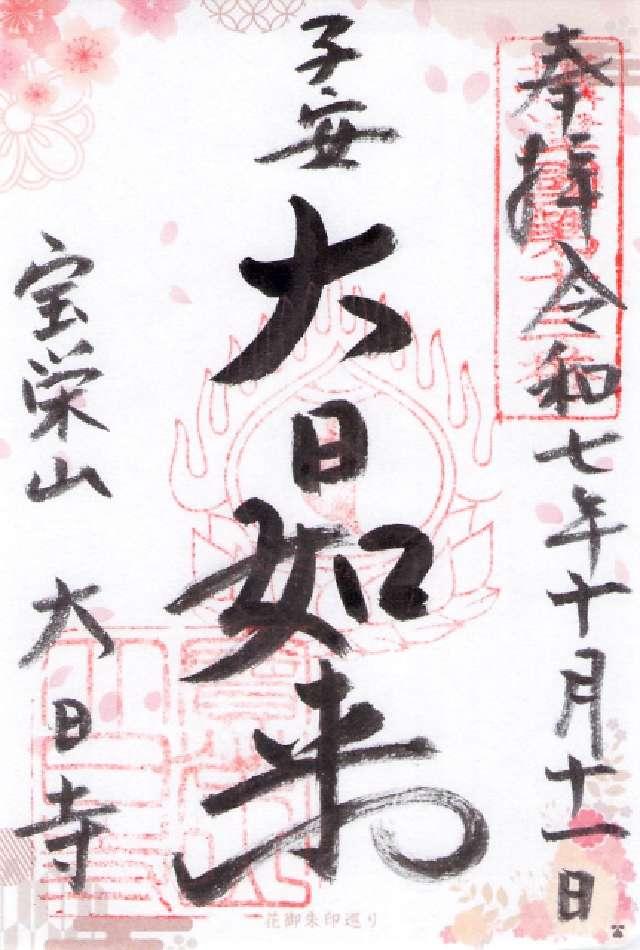 奉拝 令和七年十月十一日
子安
大日如来
宝栄山 大日寺
花御朱印巡り